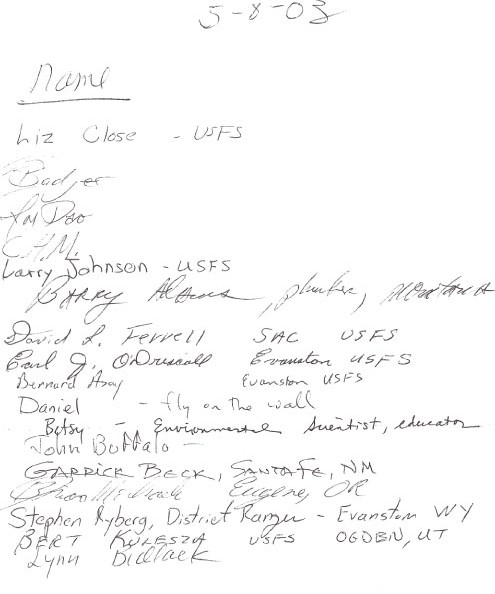 5-8-03
Name
Liz Close - USFS
Badger
C.A.M.
Larry Johnson - USFS
BARRY Adams, plunker, Montana
David L. Ferrell SAC USFS
Earl J. O'Driscoll Evanston USFS
Bernard Asay Evanston USFS
Daniel - fly on the wall
Betsy - Environmental Scientist, educator
John Buffalo -
GARRICK BECK, SANTA FE, NM
Eugene, OR
Stephen Ryberg, District Ranger - Evanston WY
BERT KULESZA USFS OGDEN, UT
Lynn Bidlack